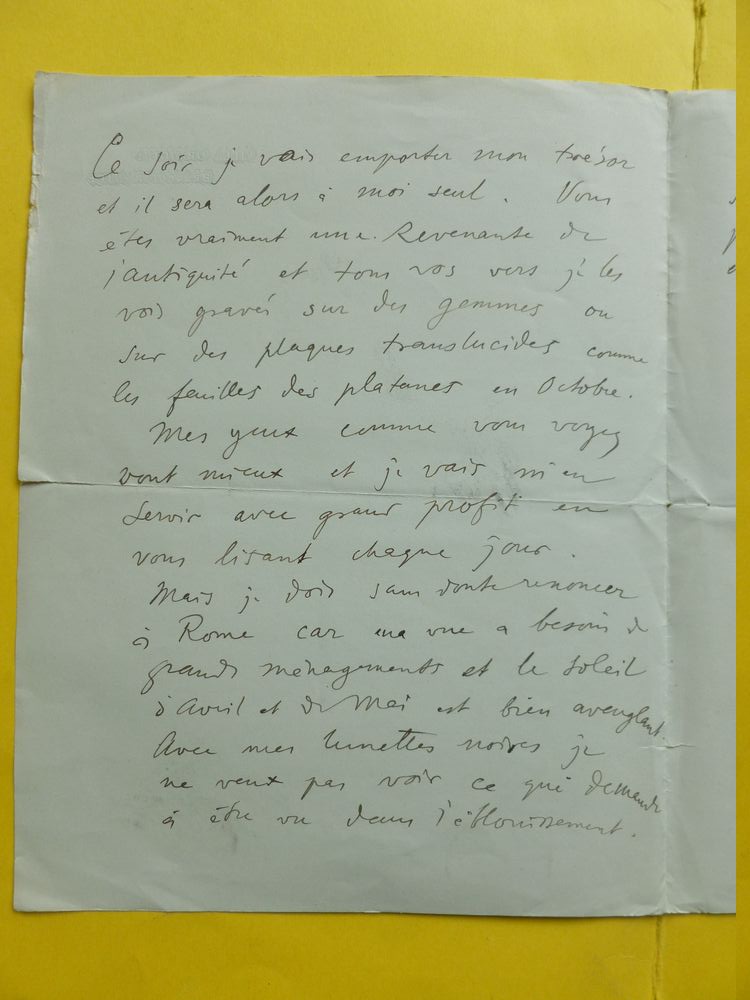 Ce soir je vais emporter mon trésor
et il sera alors à moi seul. Vous
êtes vraiment une Revenante de
l'antiquité et tous vos vers je les
vois gravés sur des gemmes ou
sur des plaques translucides comme
les feuilles des platanes en Octobre.
Mes yeux comme vous voyez
vont mieux et je vais m'en
servir avec grand profit en
vous lisant chaque jour.
Mais je dois sans doute renoncer
à Rome car ma vue a besoin de
grands ménagements et le soleil
d'Avril et de Mai est bien aveuglant.
Avec mes lunettes noires je
ne veux pas voir ce qui demande
à être vu dans l'éblouissement.